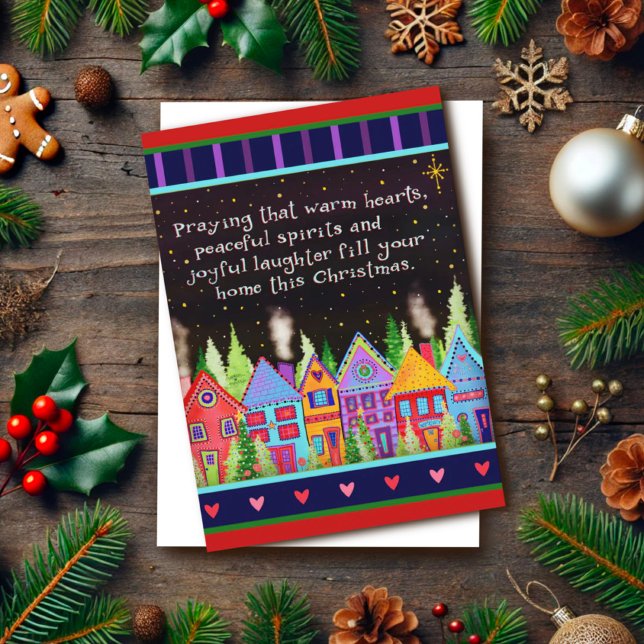 Praying that warm hearts,
peaceful spirits and
joyful laughter fill your
home this Christmas.